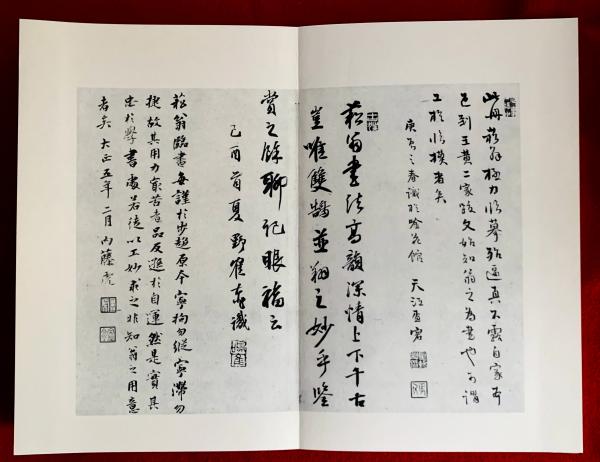 此冊菘翁極力臨摹殆逼真不露自家本
色到王黄二家跋文始知翁之為書也可謂
工於臨摸者矣
之春識於唫花館 天江
菘翁書法高韻深情上下千古
豈唯雙鵠並翔之妙乎鑒
賞之餘聊記眼福云
己酉首夏 野 識
菘翁臨書每謹於步趨原本寧拘勿縱寧滯勿
捷故其用力最苦者品反遜於自運然是實其
忠於學書處若徒以工妙求之非知翁之用意
者矣 大正五年二月 内藤虎